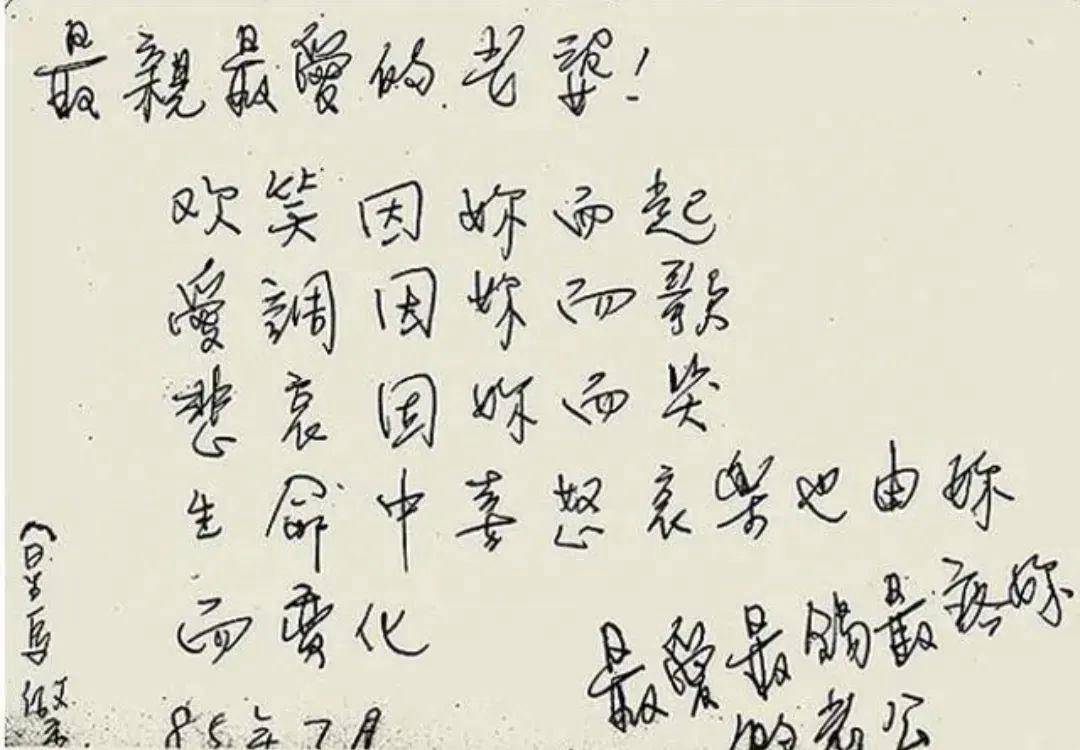 最親最愛的老婆!
欢笑因妳而起
愛調因妳而歌
悲哀因妳而哭
生命中喜怒哀樂也由妳
而變化
最愛最錫最疼妳
的老公
85年7月